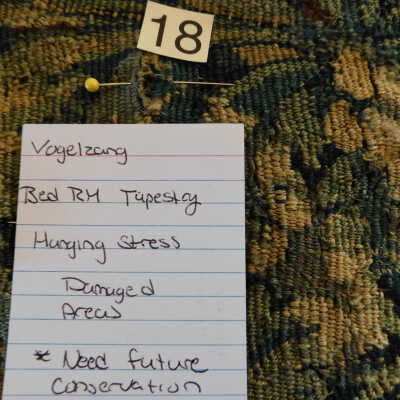 18
Vogelzang
Bed RM Tapestry
Hanging Stress
Damaged
Areas
* Need future
Conservation